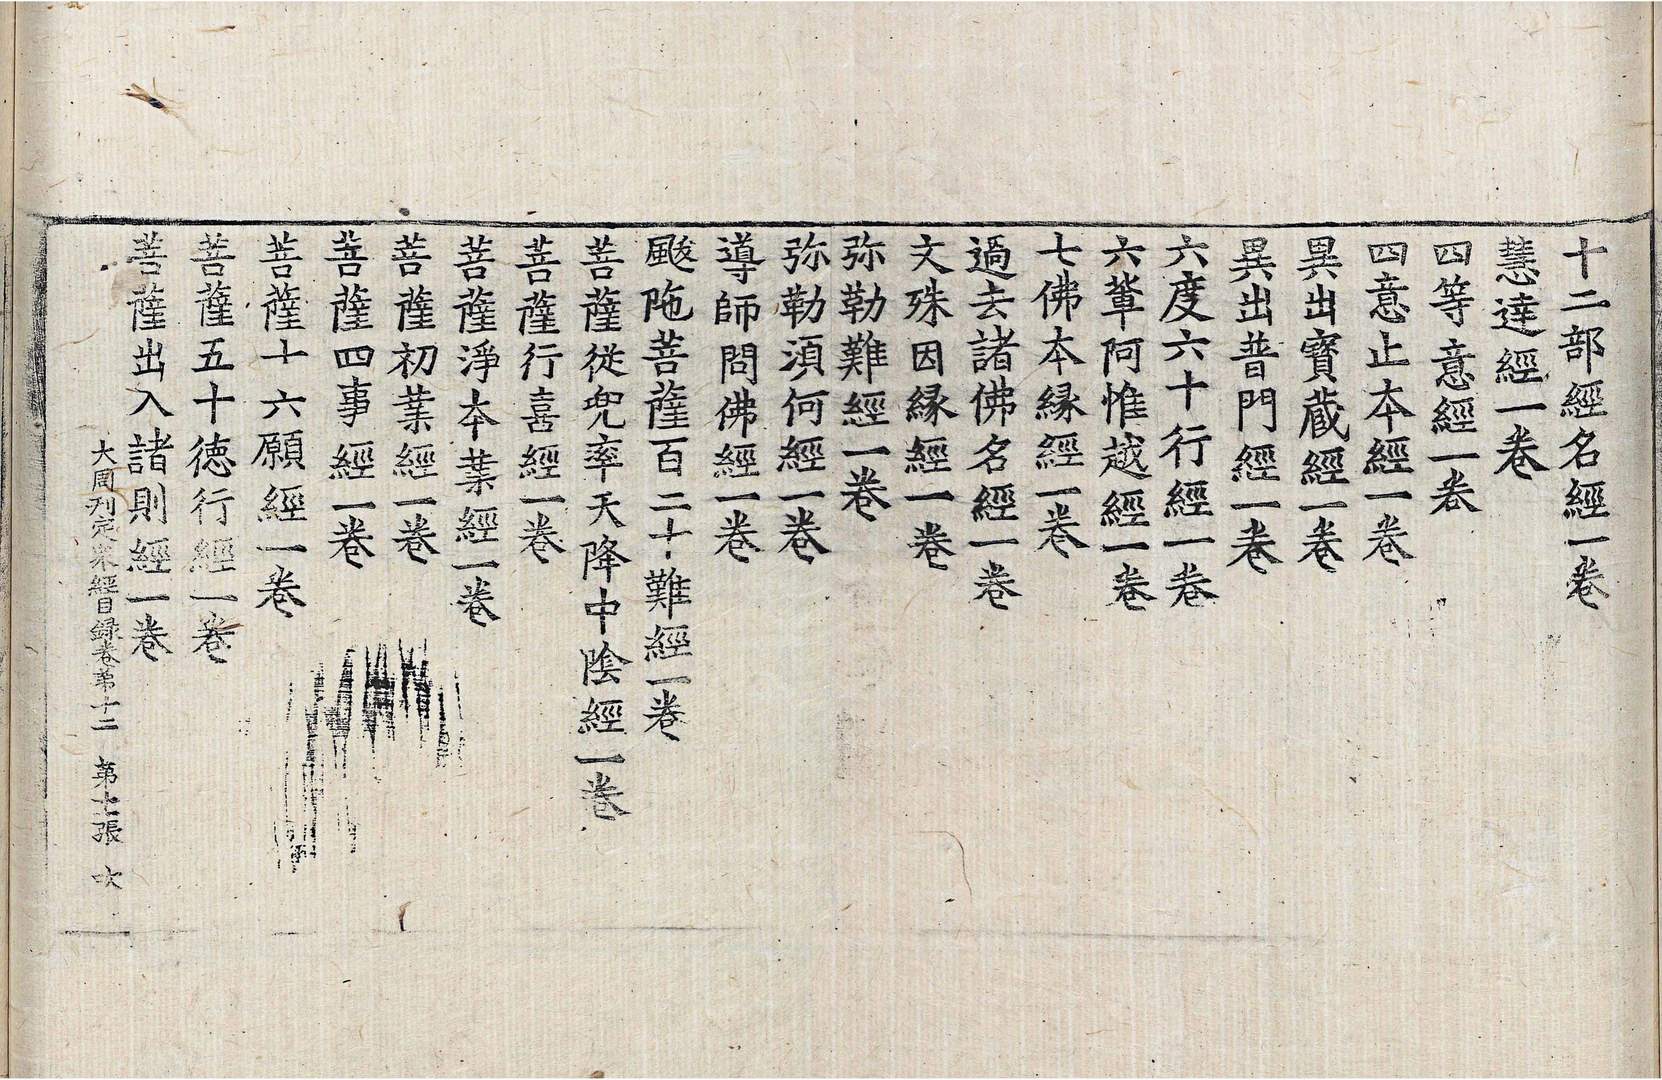 十二部經名經一卷
慧達經一卷
四等意經一卷
四意止本經一卷
異出寶蔵經一卷
異出普門經一卷
六度六十行經一卷
六軰阿惟越經一卷
七佛本縁經一卷
過去諸佛名經一卷
文殊因縁經一卷
弥勒難經一卷
弥勒湏何經一卷
導師問佛經一卷
颰陁菩薩百二十難經一卷
菩薩從兜率天降中陰經一卷
菩薩行喜經一卷
菩薩淨本業經一卷
菩薩初業經一卷
菩薩四事經一卷
菩薩十六願經一卷
菩薩五十徳行經一卷
菩薩出入諸則經一卷
大周刊定衆經目録卷苐十二 第七張 吹